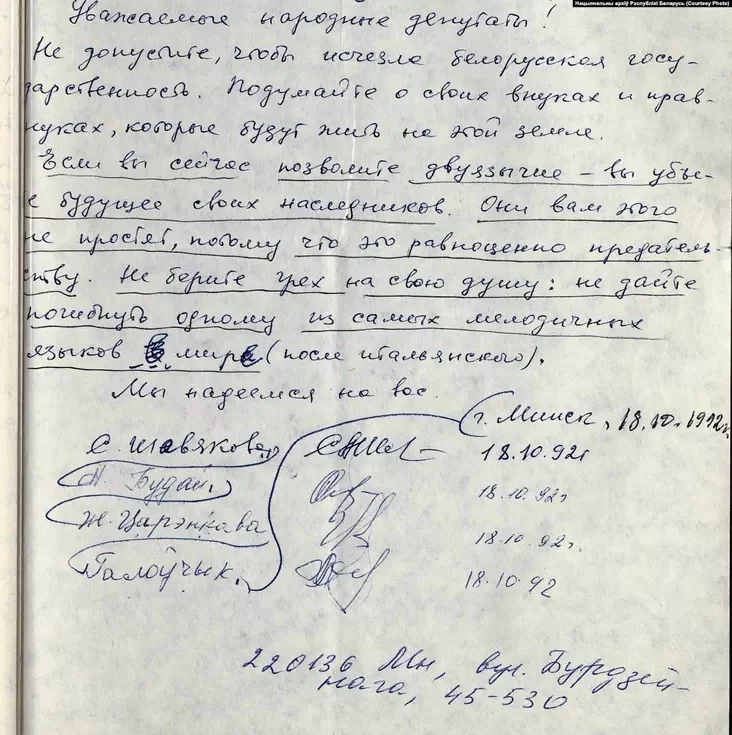 Нацыянальны архіў Рэспублікі Беларусь (Courtesy Photo)
Уважаемые народные депутаты!
Не допустите, чтобы исчезла белорусская госу-
дарственность. Подумайте о своих внуках и прав-
нуках, которые будут жить на этой земле.
Если вы сейчас позволите двуязычие – вы убье-
е будущее своих наследников. Они вам этого
не простят, потому что это равноценно предатель-
ству. Не берите грех на свою душу: не дайте
погибнуть одному из самых мелодичных
языков мира (после итальянского).
Мы надеемся на вас.
г. Минск, 18.10.1992г.
С. Шавякова 18.10.92г
Н. Будай. 18.10.92г
Ж. Царэнкава 18.10.92г.
Галоўчык. 18.10.92
220136 Мн, вул. Бурдзей-
нага, 45-530